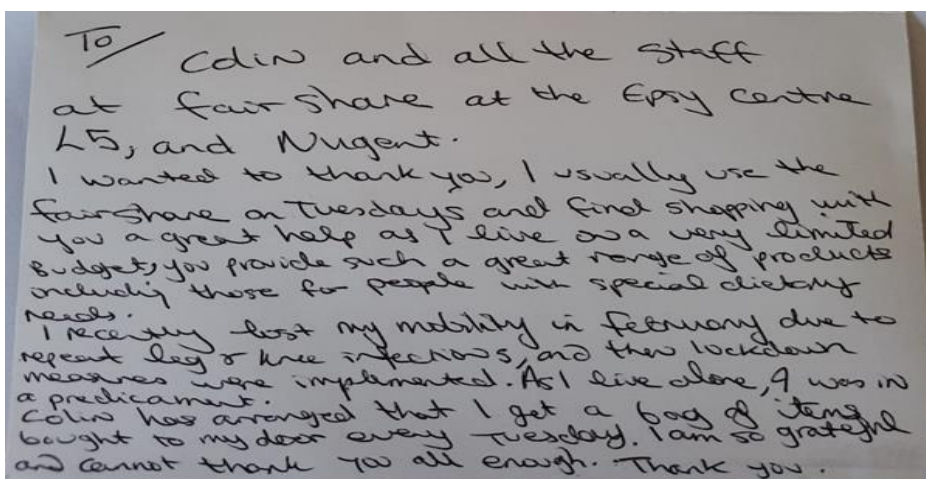 To/ Colin and all the Staff
at fairshare at the Epsy Centre
L5, and Nugent.
I wanted to thank you, I usually use the
fairshare on Tuesdays and find shopping with
you a great help as I live on a very limited
Budget, you provide such a great range of products
including those for people with special dietary
needs.
I recently lost my mobility in february due to
repeat leg & knee infections, and then lockdown
measures were implemented. As I live alone, I was in
a predicament.
Colin has arranged that I get a bag of items
bought to my door every Tuesday. I am so grateful
and cannot thank you all enough. Thank you.